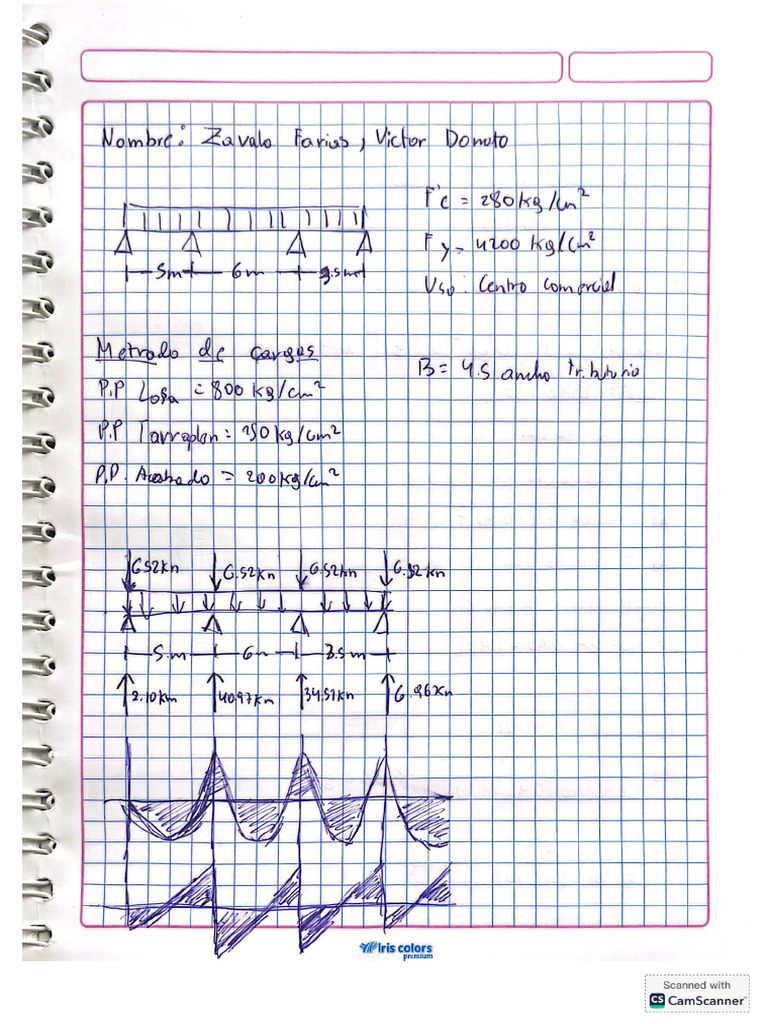 Nombre: Zavala Farias, Victor Donato
F'c = 280 kg/cm²
Fy = 4200 kg/cm²
5m 6m 3.5m
Uso: Centro comercial
Metrado de cargas
B = 4.5 ancho tributario
P.P Losa = 800 kg/cm²
P.P = kg/cm²
P.P. Acabado = 200 kg/cm²
6.52kn 6.52kn 6.52kn 6.52kn
5.m 6m 3.5m
2.10kn 40.97kn 34.51kn 6.96kn
Iris colors
premium
Scanned with
CS CamScanner